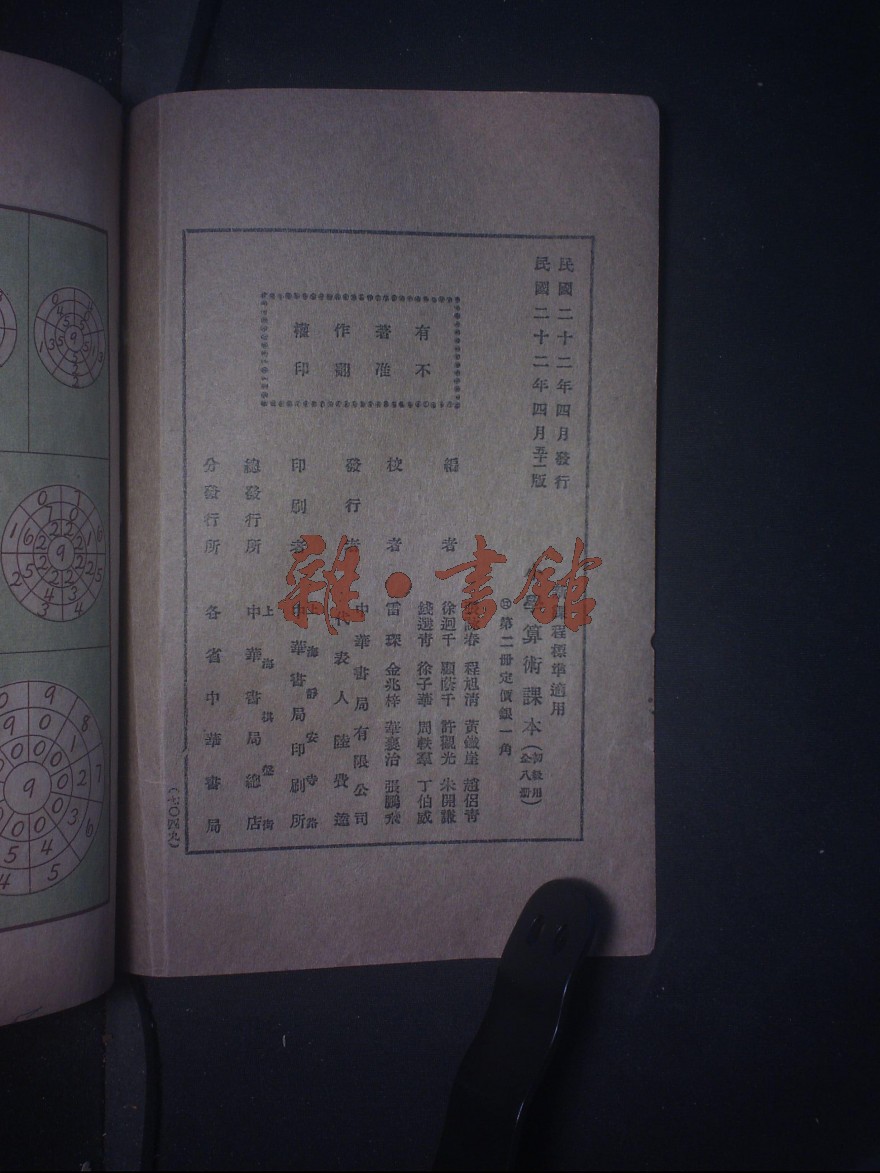 民國二十二年四月發行
民國二十二年四月版
課程標準適用
學算術課本(初級用全八册)
第二冊定價銀一角
有著作權
不准翻印
編者
春 程旭清 黃鐵崖 趙侶青
徐迥千 顧蔭千 許觀光 朱開謙
錢選青 徐子華 周軼羣 丁伯威
校者
雷琛 金兆梓 華襄治 張鵬飛
發行者
中華書局有限公司
代表人 陸費逵
印刷者
上海靜安寺路
中華書局印刷所
總發行所
上海棋盤街
中華書局總店
分發行所
各省中華書局
(七〇四九)
雜·書館